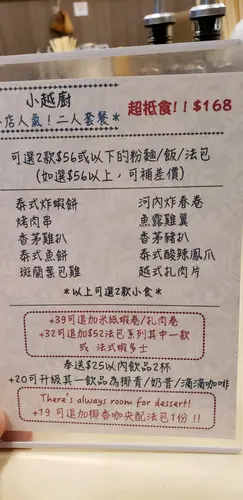 小越廚
店人氣!二人套餐*
超抵食!!$168
可選2款$56或以下的粉麵/飯/法包
(如選$56以上,可補差價)
泰式炸蝦餅 河內炸春卷
烤肉串 魚露雞翼
香茅雞扒 香茅豬扒
泰式魚餅 泰式酸辣鳳爪
斑蘭葉包雞 越式扎肉片
*以上可選2款小食*
+39可追加米紙蝦卷/扎肉卷
+32可追加$52法包系列其中一款
或 法式蝦多士
奉送$25以內飲品2杯
+20可升級其一飲品為椰青/奶昔/滴滴咖啡
There's always room for dessert!
+19 可追加椰香咖央配法包1份!!